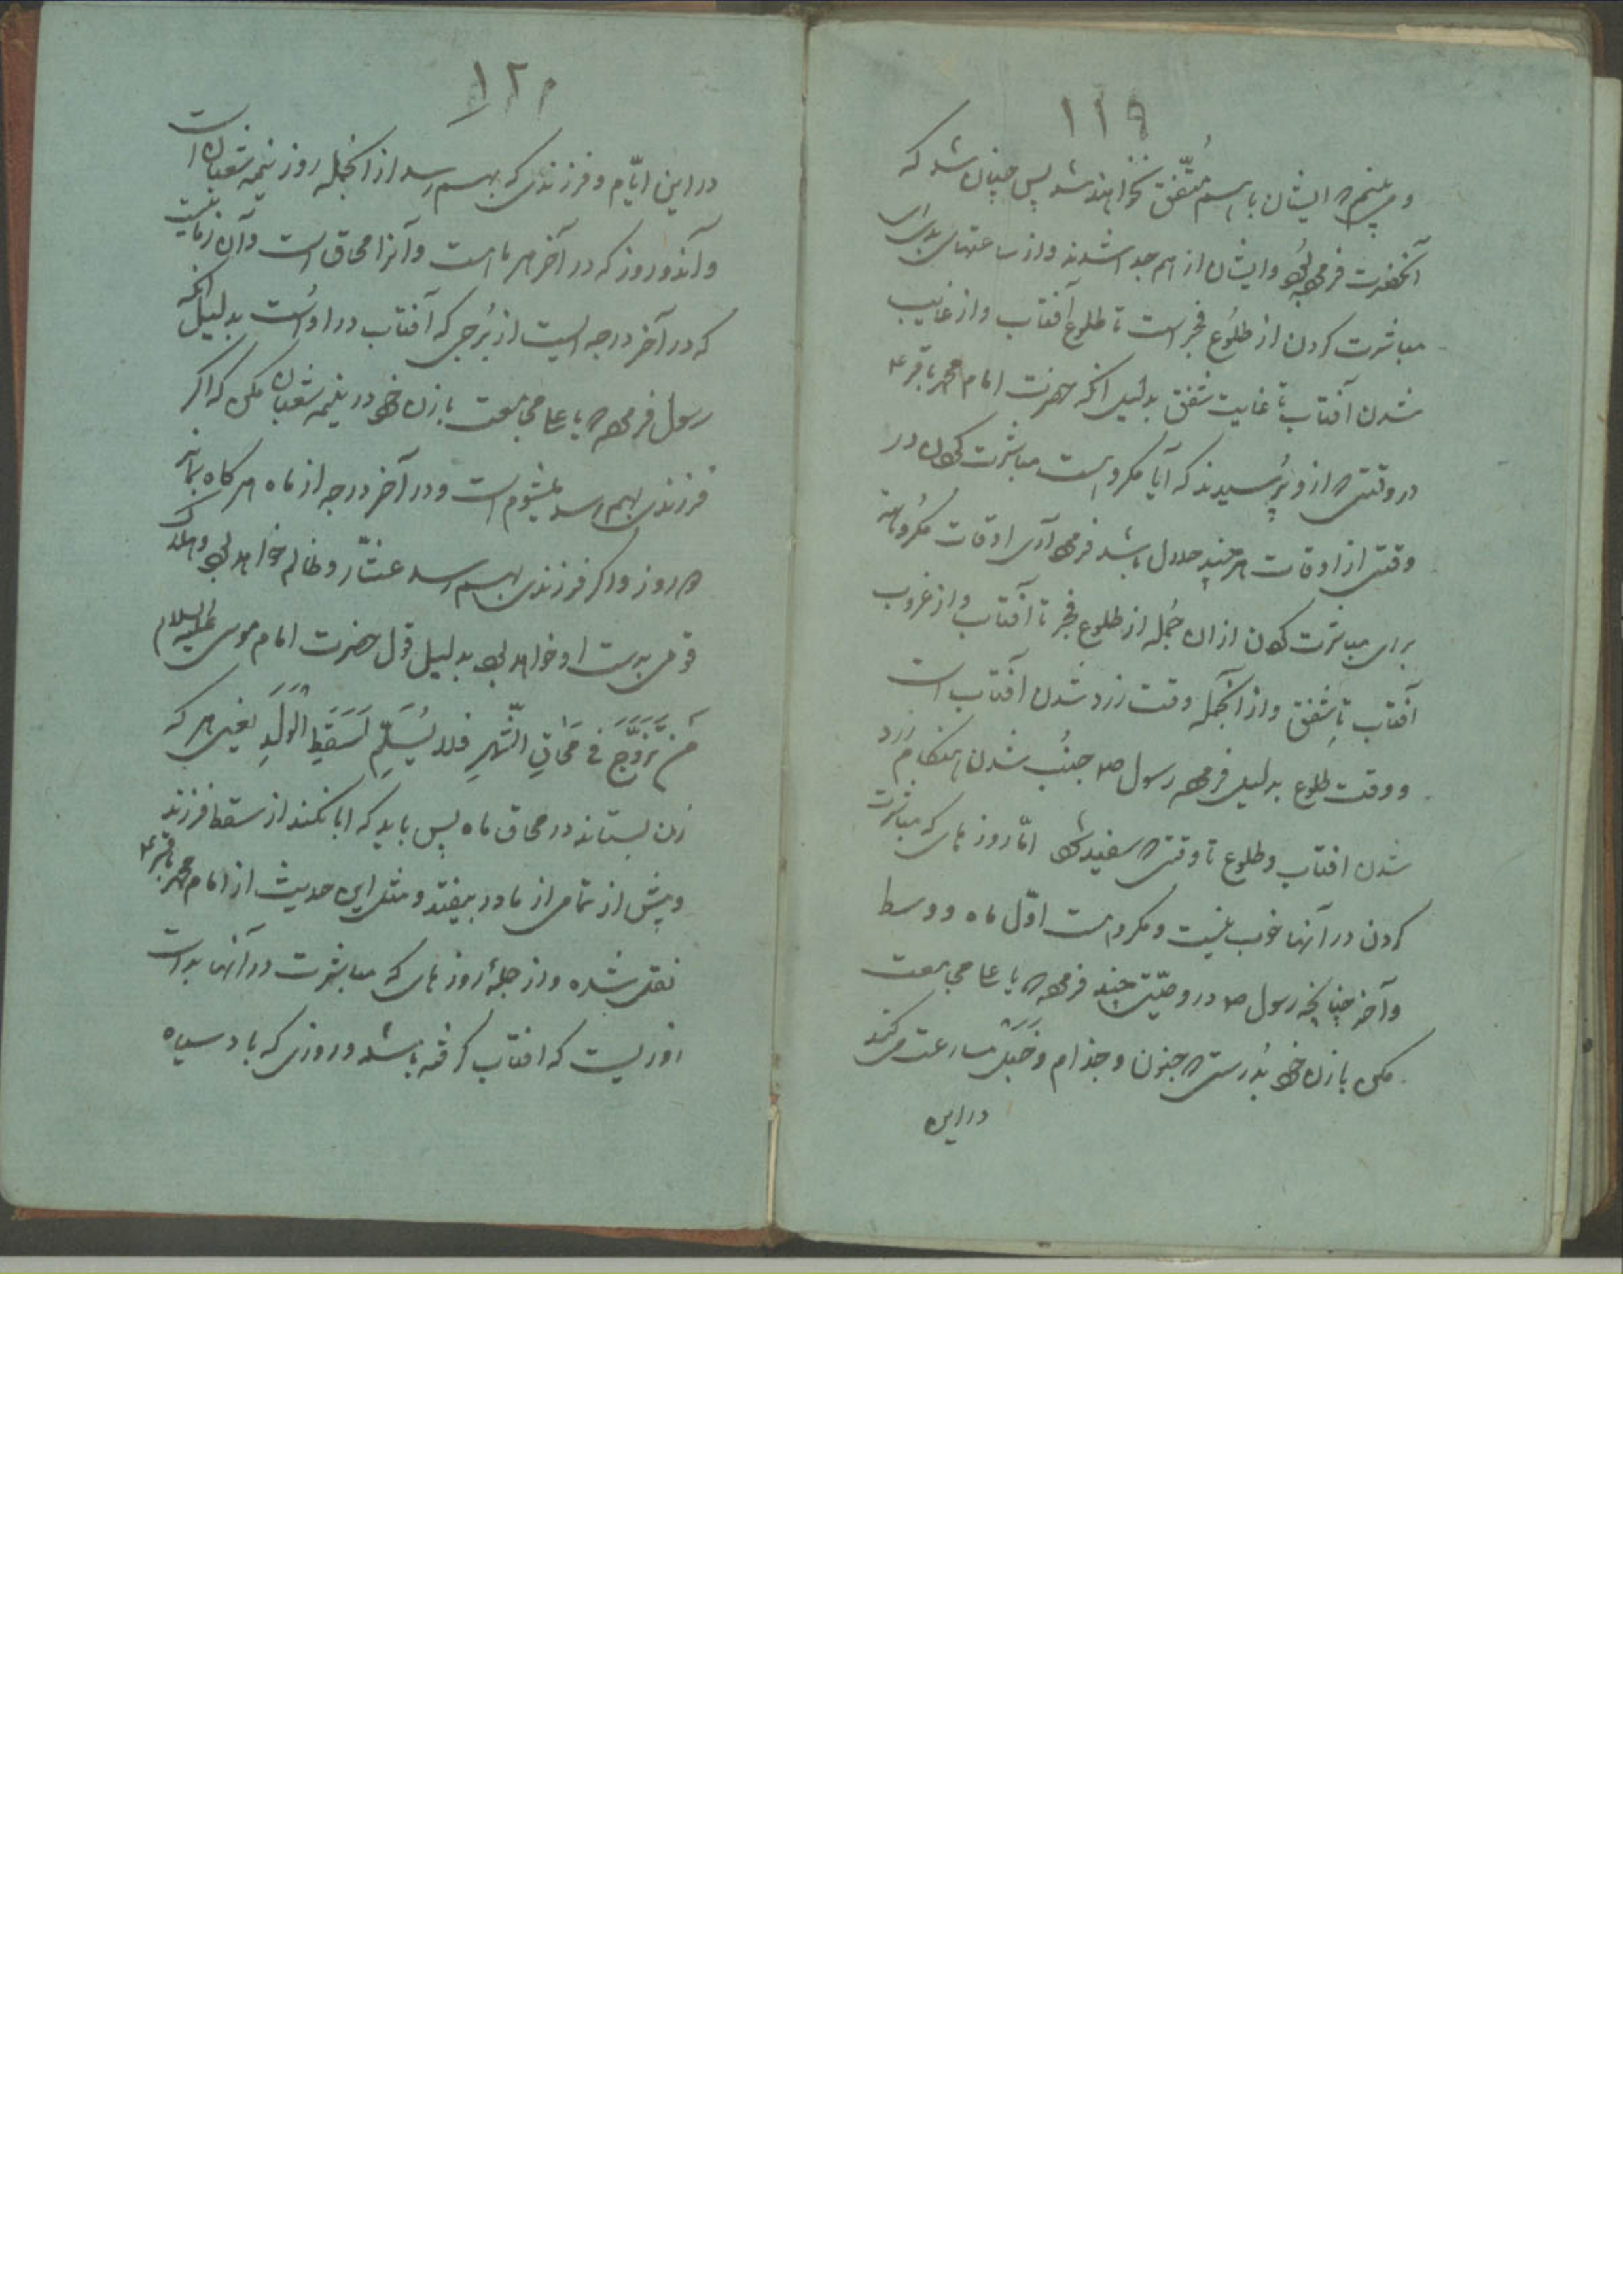 ١١٩
و می‌بینم که ایشان با هم متّفق نخواهند شد پس چنان شد که
آنحضرت فرموده بود و ایشان از هم جدا شدند و از ساعتهای بد برای
مباشرت کردن از طلوع فجر است تا طلوع آفتاب و از غایب
شدن آفتاب تا غایت شفق بدلیل انکه حضرت امام محمد باقر ع
در وقتی که ازو پُرسیدند که آیا مکروه است مباشرت کردن در
وقتی از اوقات هر چند حلال باشد فرمود آری اوقات مکروهه
برای مباشرت کردن ازان جُمله از طلوع فجر تا آفتاب و از غروب
آفتاب تا شفق و از آنجمله وقت زرد شدن آفتاب است
و وقت طلوع بدلیل فرموده رسول ص جنُب شدن هنکام زرد
شدن افتاب و طلوع تا وقتی که سفید شود امّا روزهای که مباشرت
کردن در آنها خوب نیست و مکروه است اوّل ماه و وسط
و آخر چنانچه رسول ص در وصیّتی چند فرموده که یا علی مجامعت
مکن با زن خود بدُرستی که جنون و جذام و خَبَل مسارعت می‌کند
در این
١٢٠
در این ایّام و فرزندی که بهم رسد از انجُمله روز نیمه شعبان است
و آندو روز که در آخر هر ماه است و آنرا محاق است و آن زمانیست
که در آخر درجه ایست از بُرجی که آفتاب در اوست بدلیل انکه
رسول فرموده که یا علی مجامعت با زن خود در نیمه شعبان مکن که اکر
فرزندی بهم رسد میشوم است و در آخر درجه از ماه هر کاه بماند
دو روز و اکر فرزندی بهم رسد عشّار و ظالم خواهد بود و هلاک
قومی بدست او خواهد بود بدلیل قول حضرت امام موسی علیه السلام
مَن تَزَوَّجَ فی مَحَاقِ الشّهرِ فلا یُسَلِّم لَسَقَطِ الوَلَدِ یعنی هر که
زن بستاند در محاق ماه پس باید که ابا نکند از سقط فرزند
و پیش از تمامی از مادر بیفتد و مثل این حدیث از امام محمد باقر ع
نقل شده و از جملهٔ روزهای که مباشرت در آنها بد است
روزیست که افتاب کرفته باشد و روزی که باد سیاه